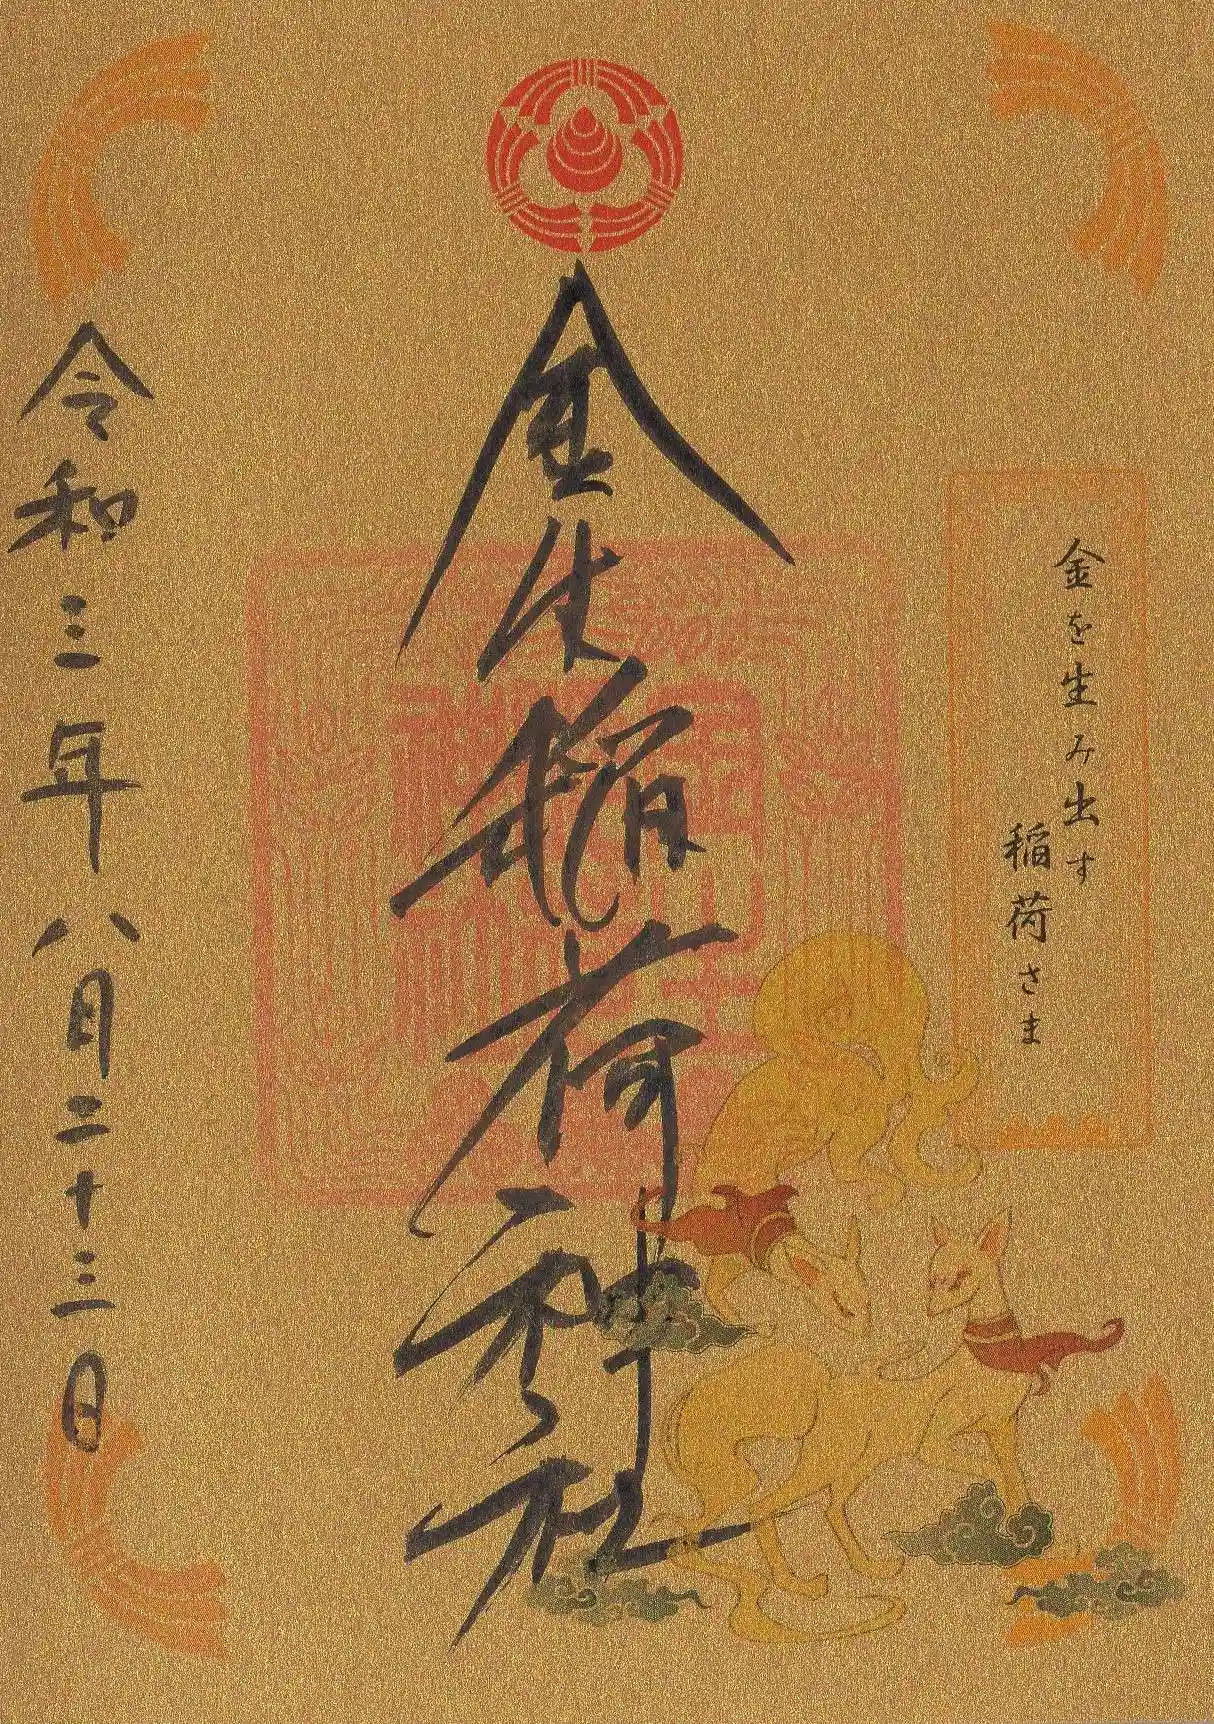 金を生み出す
稲荷さま
金生稲荷神社
令和三年八月二十三日